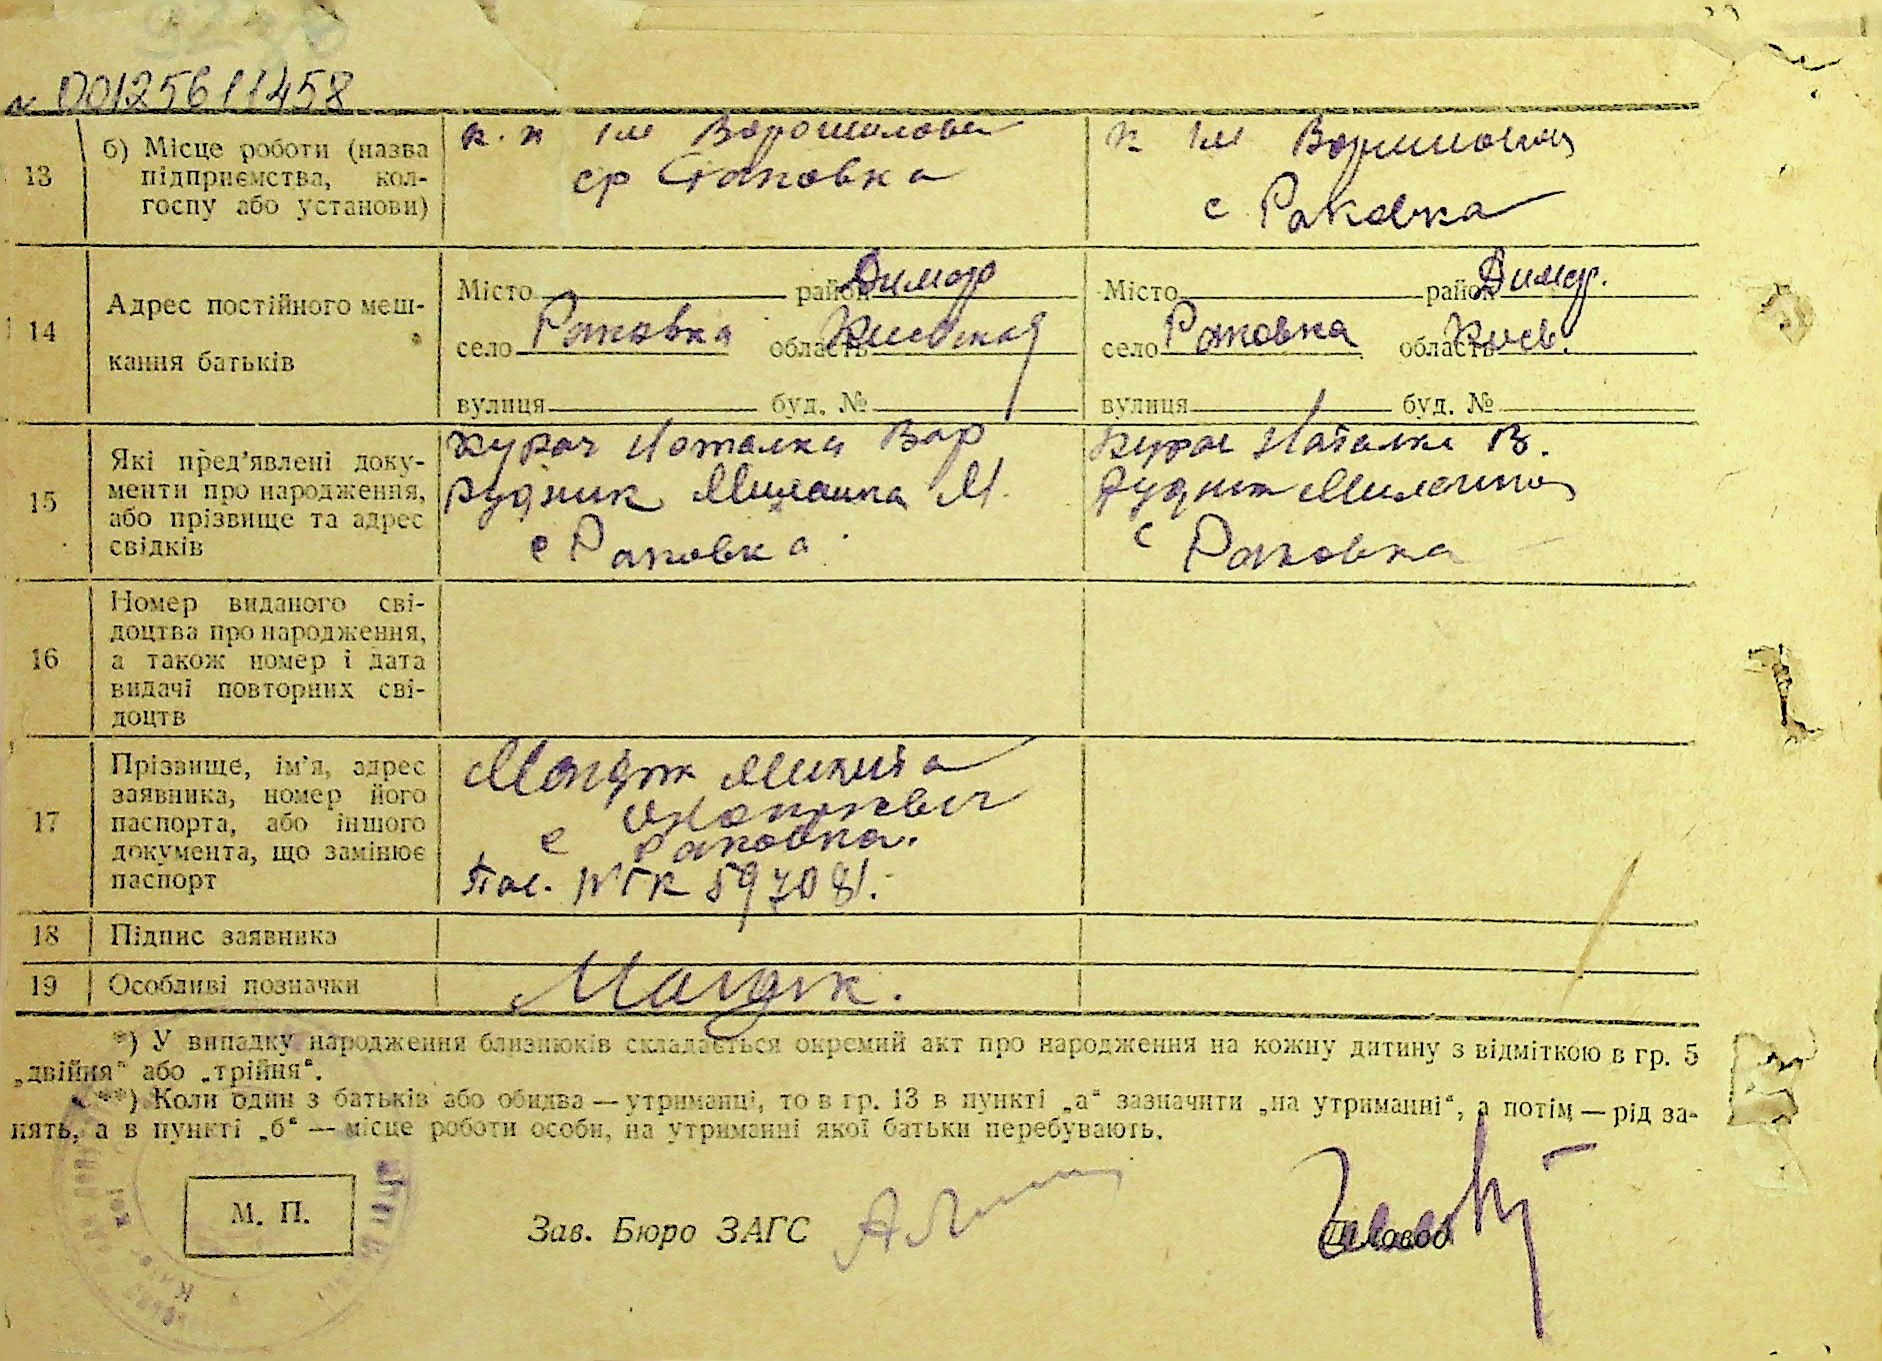 00125611458
13
б) Місце роботи (назва
підприємства, кол-
госпу або установи)
к. к ім Ворошилова
с. Раковка
14
Адрес постійного меш-
кання батьків
Місто район Димер
село Раковка область Киевская
вулиця буд. №
Місто район Димер.
село Раковка область Киев.
вулиця буд. №
15
Які пред'явлені доку-
менти про народження,
або прізвище та адрес
свідків
Наталка Вар
Рудник М.
с Раковка
Наталка В.
Рудник
с Раковка
16
Номер виданого сві-
доцтва про народження,
а також номер і дата
видачі повторних сві-
доцтв
17
Прізвище, ім'я, адрес
заявника, номер його
паспорта, або іншого
документа, що замінює
паспорт
Микита
с Раковка.
Пас. № ГК 597081.
18
Підпис заявника
19
Особливі позначки
*) У випадку народження близнюків складається окремий акт про народження на кожну дитину з відміткою в гр. 5
„двійня“ або „трійня“.
**) Коли один з батьків або обидва — утриманці, то в гр. 13 в пункті „а“ зазначити „на утриманні“, а потім — рід за-
нять, а в пункті „б“ — місце роботи особи, на утриманні якої батьки перебувають.
М. П.
Зав. Бюро ЗАГС